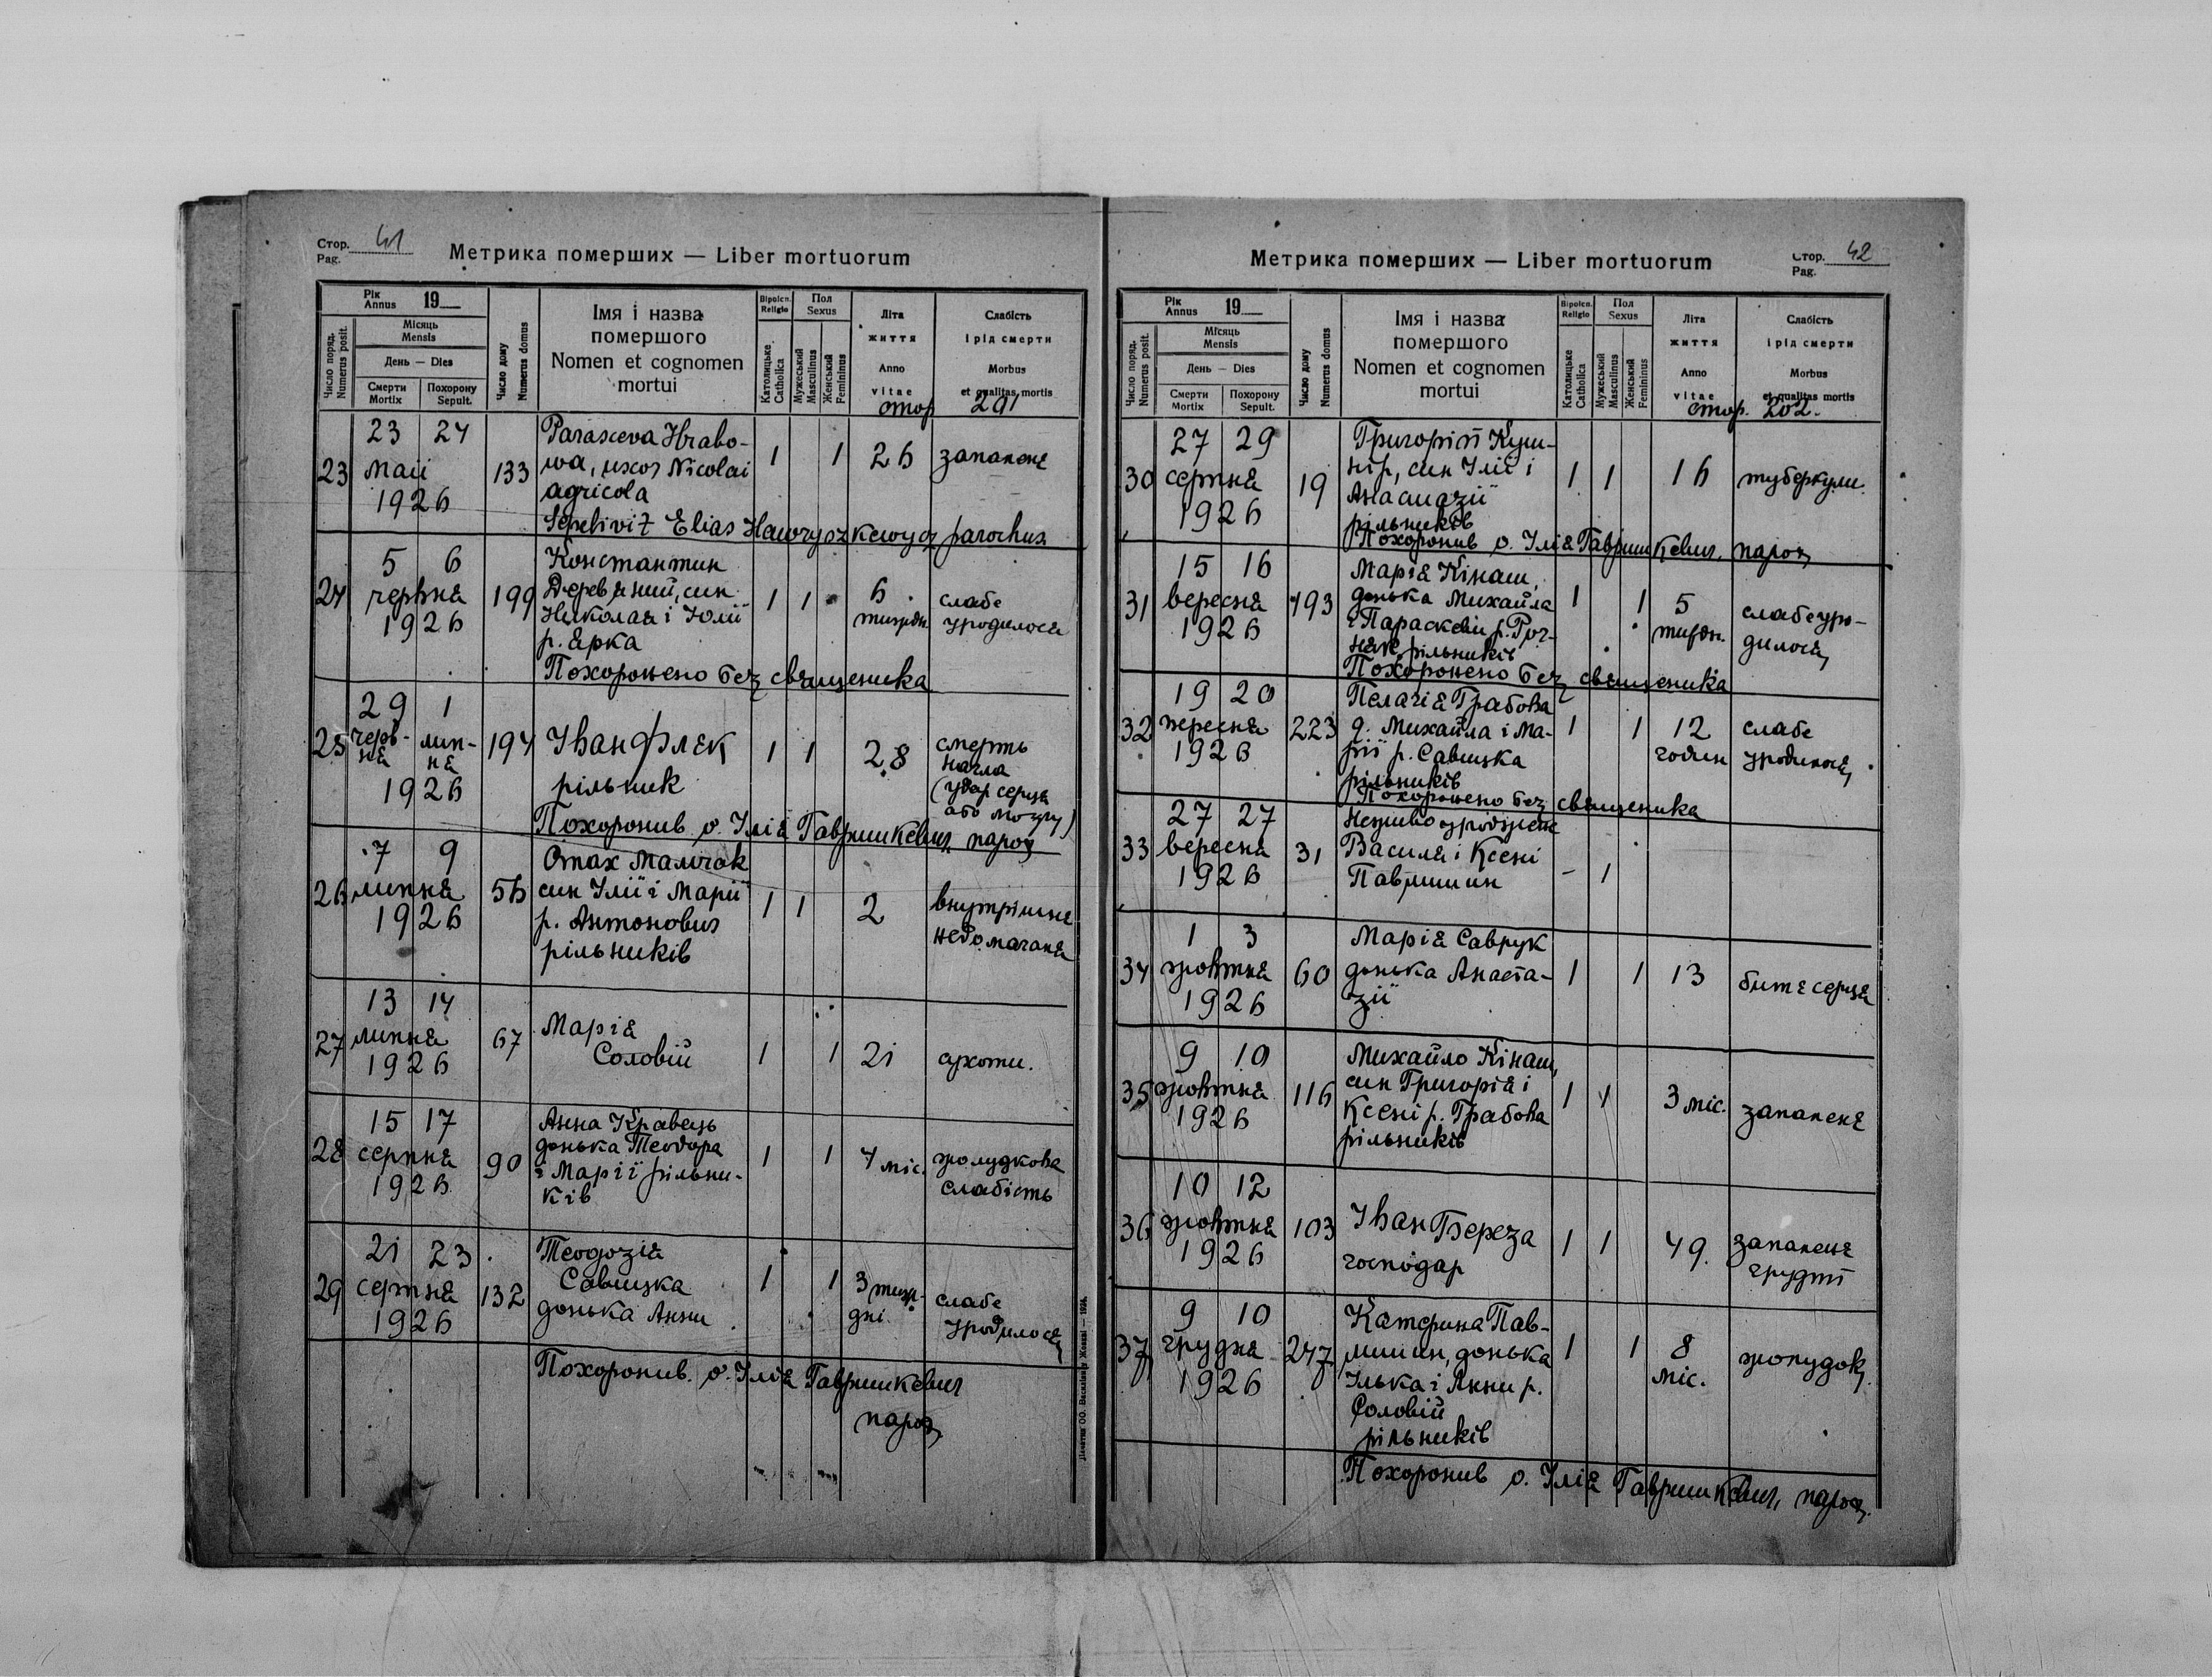 Стор. 41
Pag.
Метрика померших — Liber mortuorum
Рік
Annus 19
Місяць
Mensis
День — Dies
Смерти
Mortix
Похорону
Sepult.
Число поряд.
Numerus posit.
Число дому
Numerus domus
Імя і назва
помершого
Nomen et cognomen
mortui
Віроісп.
Religio
Католицьке
Catholica
Пол
Sexus
Мужеський
Masculinus
Женський
Femininus
Літа
життя
Anno
vitae
Слабість
і рід смерти
Morbus
et qualitas mortis
стор 201
23 24
23 май 133
1926
Parasceva Hrabo-
wa, uxor Nicolai
agricola
1 1 26 запаленє
Sepelivit Elias Hawryszkewycz parochus
5 6
24 червня 199
1926
Константин
Деревяний, син
Николая і Юлії
р. Ярка
1 1 6
тижд.
слабе
уродилося
Похоронено без священика
29 1
25 черв-
ня
лип-
ня
194
1926
Іван Фляк
рільник
1 1 28
смерть
нагла
(удар серця
або мозгу)
Похоронив о. Ілія Гавришкевич парох
7 9
26 липня 56
1926
Стах Мамчак
син Ілії і Марії
р. Антонович
рільників
1 1 2
внутрішнє
недомаганє
13 14
27 липня 67
1926
Марія
Соловій
1 1 21 сухоти.
15 17
28 серпня 90
1926
Анна Кравець
донька Теодора
і Марії рільни-
ків
1 1 4 міс.
жолудкова
слабість
21 23
29 серпня 132
1926
Теодозія
Савицка
донька Анни
1 1 3 тиж-
дні
слабе
уродилося
Похоронив о. Ілія Гавришкевич
парох
Метрика померших — Liber mortuorum
Стор. 42
Pag.
Рік
Annus 19
Місяць
Mensis
День — Dies
Смерти
Mortix
Похорону
Sepult.
Число поряд.
Numerus posit.
Число дому
Numerus domus
Імя і назва
помершого
Nomen et cognomen
mortui
Віроісп.
Religio
Католицьке
Catholica
Пол
Sexus
Мужеський
Masculinus
Женський
Femininus
Літа
життя
Anno
vitae
Слабість
і рід смерти
Morbus
et qualitas mortis
стор. 202.
27 29
30 серпня 19
1926
Григорій Куш-
нір, син Ілії і
Анастазії
рільників
1 1 16 туберкули.
Похоронив о. Ілія Гавришкевич, парох
15 16
31 вересня 193
1926
Марія Кінаш,
донька Михайла
і Параскеви р. Рог-
няк рільників
1 1 5
тижд.
слабе уро-
дилося
Похоронено без священика
19 20
32 вересня 223
1926
Пелагія Грабова
д. Михайла і Ма-
рії р. Савицка
рільників
1 1 12
годин
слабе
уродилося
Похоронено без священика
27 27
33 вересня 31
1926
Неживо уроджене
Василя і Ксені
Павлишин
- 1
1 3
34 жовтня 60
1926
Марія Саврук
донька Анаста-
зії
1 1 13 битє серця
9 10
35 жовтня 116
1926
Михайло Кінаш,
син Григорія і
Ксені р. Грабова
рільників
1 1 3 міс. запаленє
10 12
36 жовтня 103
1926
Іван Береза
господар
1 1 49.
запаленє
грудий
9 10
37 грудня 247
1926
Катерина Пав-
лишин, донька
Ілька і Анни р.
Соловій
рільників
1 1 8
міс.
жолудок
Похоронив о. Ілія Гавришкевич, парох.